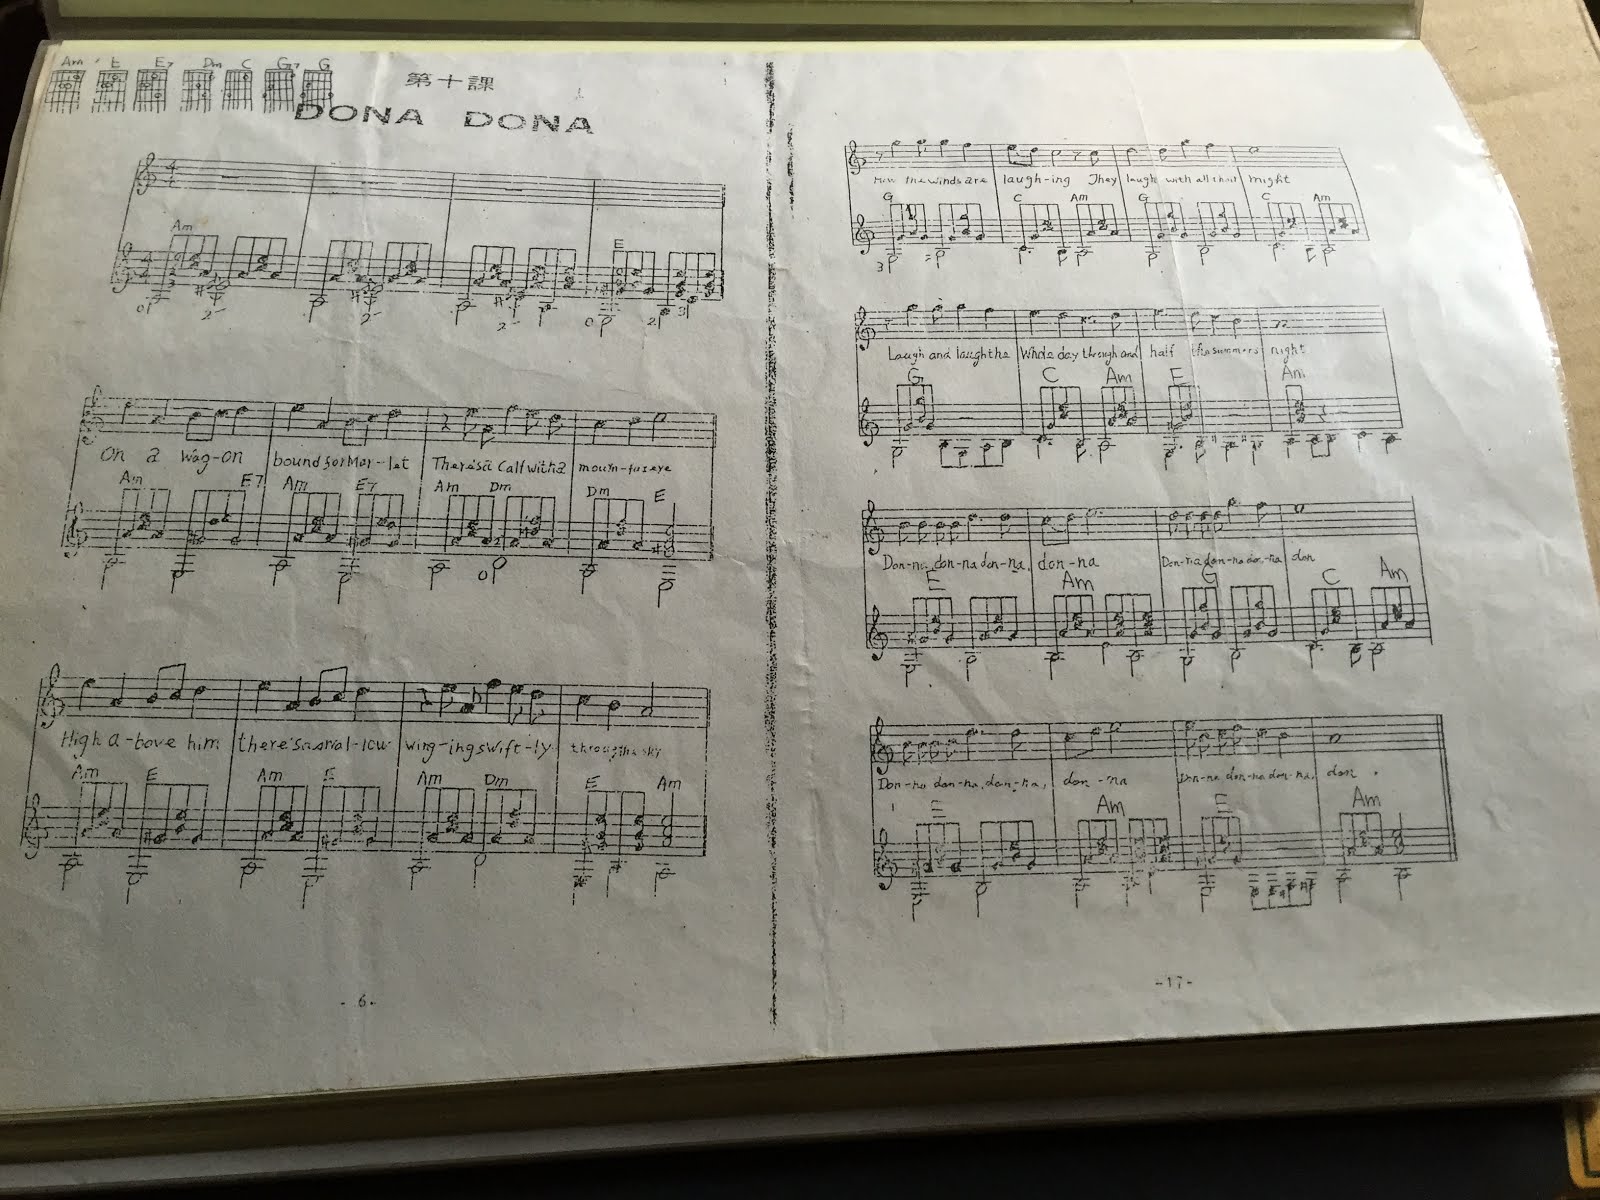 Am E E7 Dm C G7 G
第十課
DONA DONA
Am E
On a wag-on bound for Mar-ket There's a Calf with a mourn-ful eye
Am E7 Am E7 Am Dm Dm E
High a-bove him there's a swal-low wing-ing swift-ly through the sky
Am E Am E Am Dm E Am
-6-
How the winds are laugh-ing They laugh with all their might
G C Am G C Am
Laugh and laugh the Whole day through and half the summers night
G C Am E Am
Don-na don-na don-na, don-na Don-na don-na don-na don
E Am G C Am
Don-na don-na, don-na, don-na Don-na don-na don-na, don.
E Am E Am
-17-